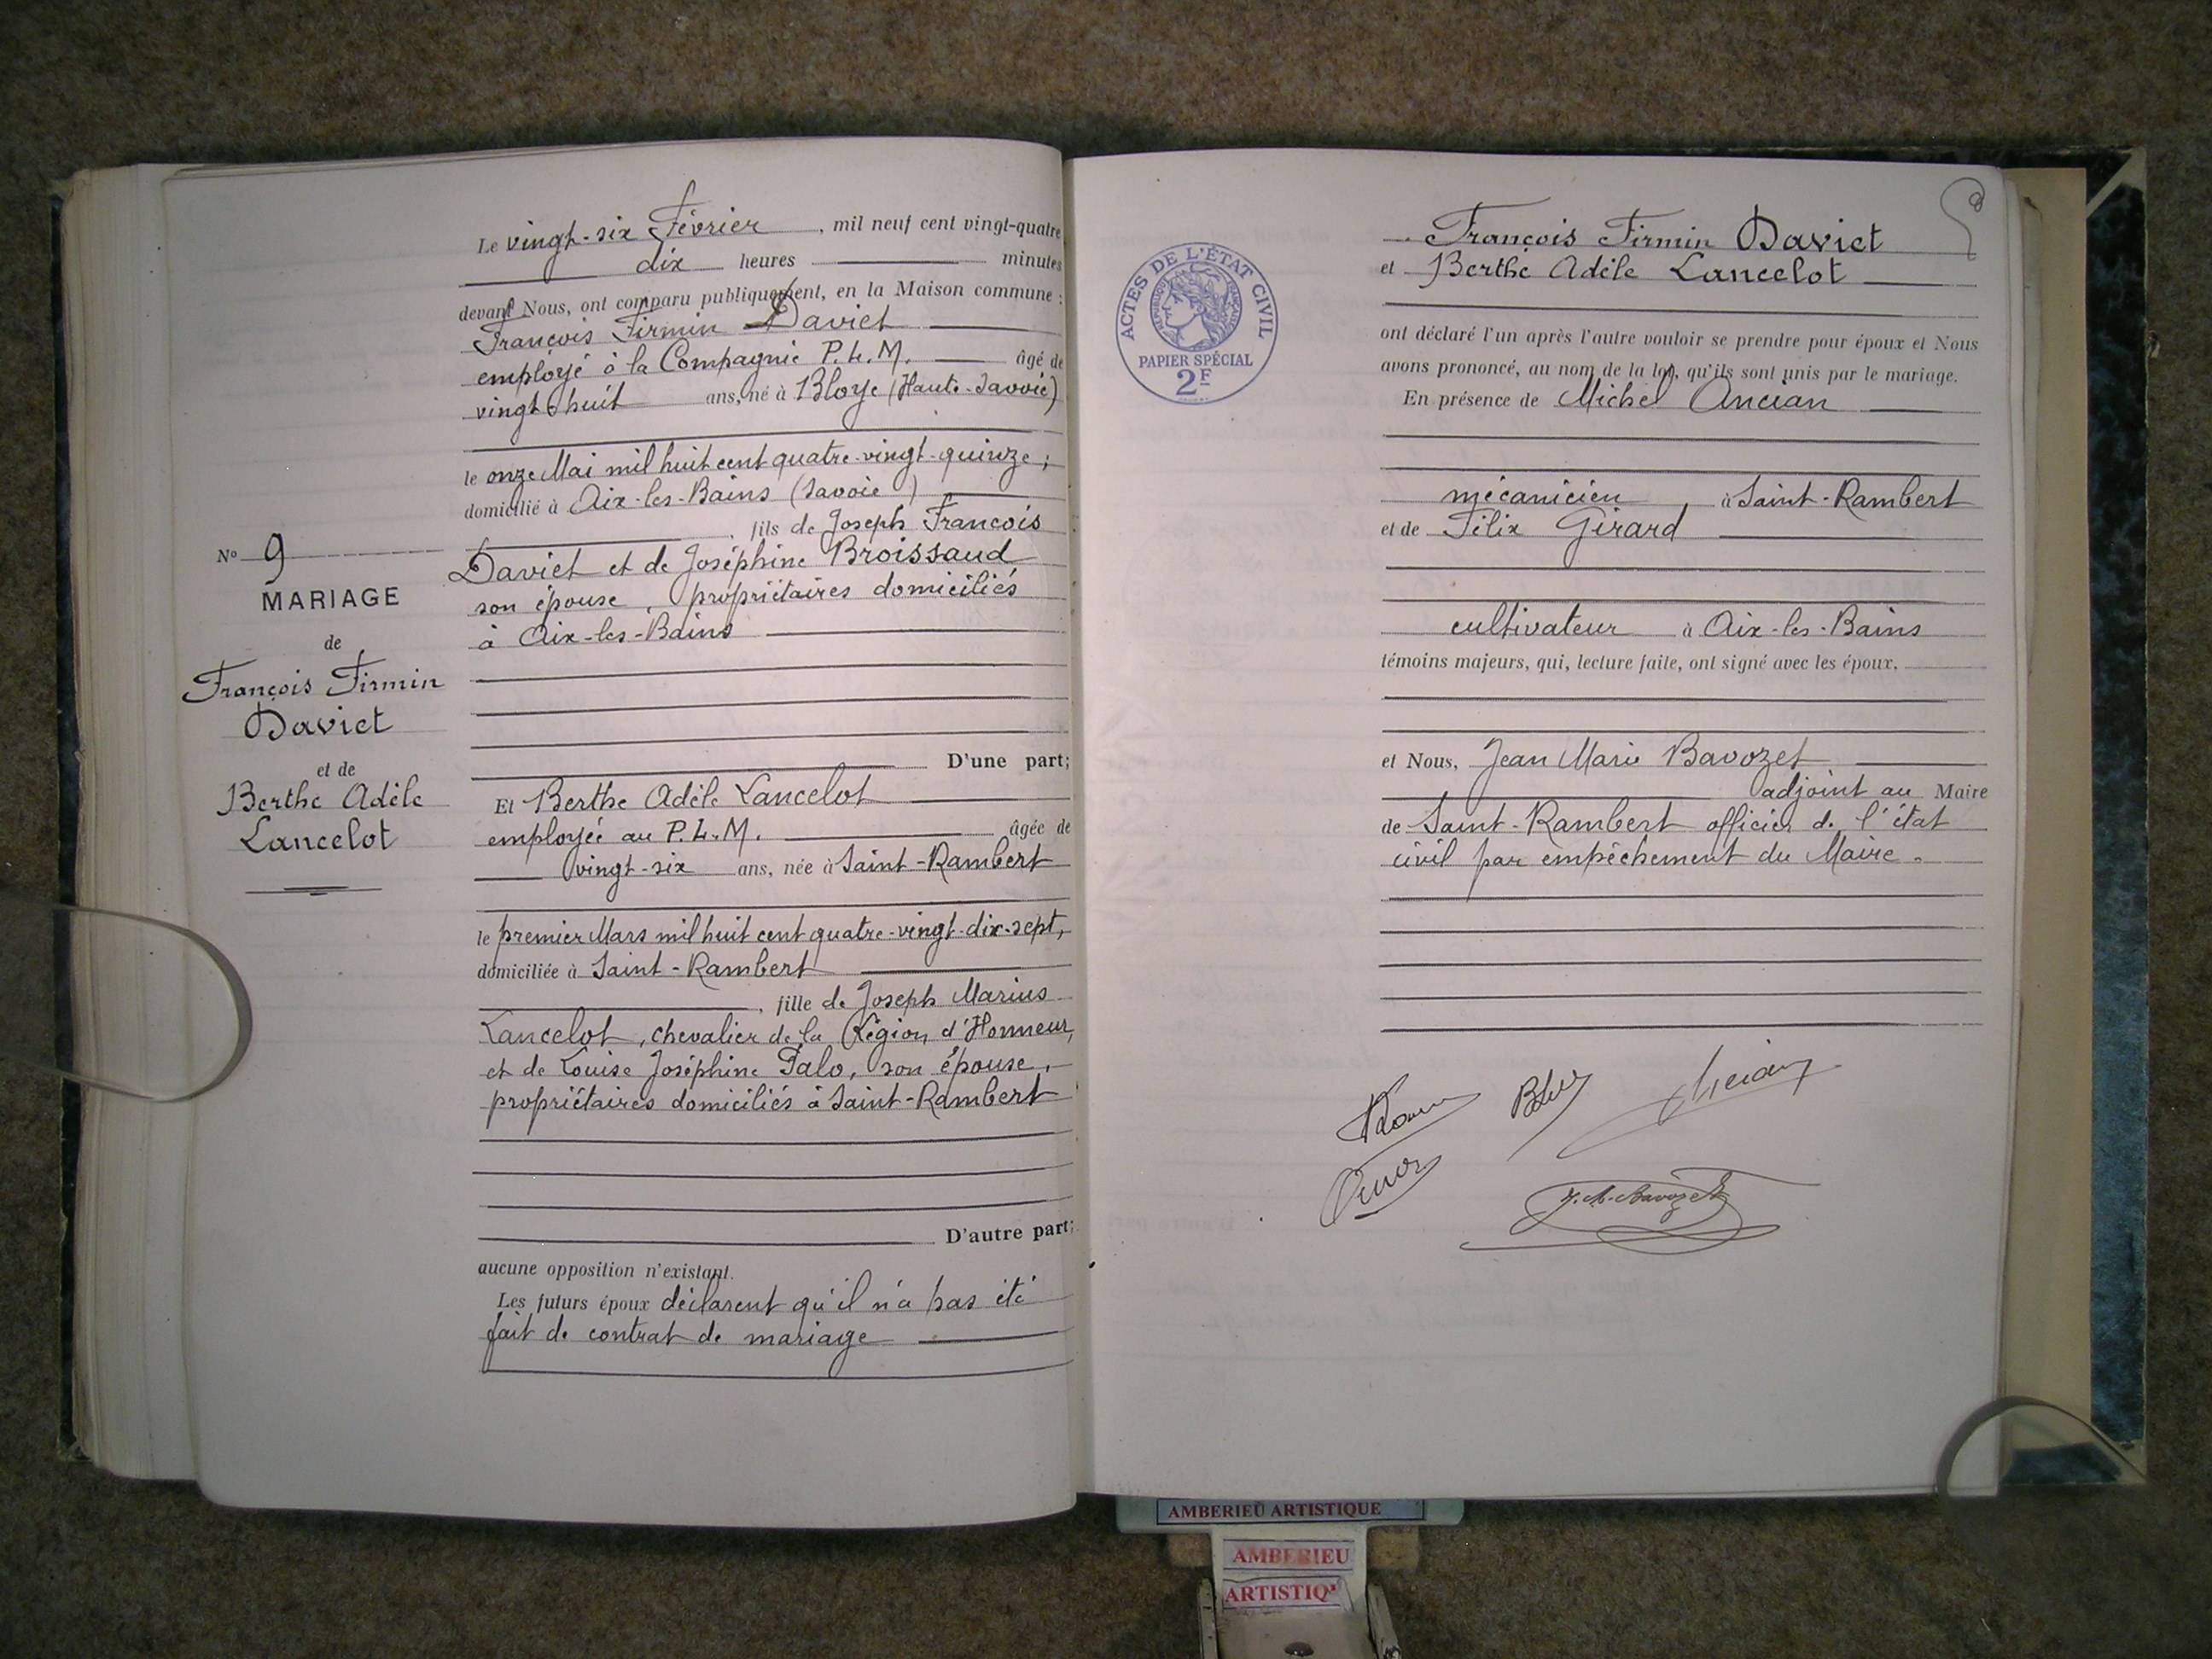 Le vingt-six Février, mil neuf cent vingt-quatre
dix heures minutes
devant Nous, ont comparu publiquement, en la Maison commune :
François Firmin Daviet
employé à la Compagnie P.L.M. âgé de
vingt-huit ans, né à Bloye (Haute-Savoie)
le onze Mai mil huit cent quatre-vingt-quinze ;
domicilié à Aix-les-Bains (Savoie)
, fils de Joseph François
Daviet et de Joséphine Broissaud
son épouse, propriétaires domiciliés
à Aix-les-Bains
D'une part;
Et Berthe Adèle Lancelot
employée au P.L.M. âgée de
vingt-six ans, née à Saint-Rambert
le premier Mars mil huit cent quatre-vingt-dix-sept,
domiciliée à Saint-Rambert
, fille de Joseph Marius
Lancelot, chevalier de la Légion d'Honneur,
et de Louise Joséphine Palo, son épouse,
propriétaires domiciliés à Saint-Rambert
D'autre part;
aucune opposition n'existant.
Les futurs époux déclarent qu'il n'a pas été
fait de contrat de mariage
N° 9
MARIAGE
de
François Firmin
Daviet
et de
Berthe Adèle
Lancelot
ACTES DE L'ÉTAT CIVIL
RÉPUBLIQUE FRANÇAISE
PAPIER SPÉCIAL
2F
François Firmin Daviet
et Berthe Adèle Lancelot
ont déclaré l'un après l'autre vouloir se prendre pour époux et Nous
avons prononcé, au nom de la loi, qu'ils sont unis par le mariage.
En présence de Michel Ancian
mécanicien à Saint-Rambert
et de Félix Girard
cultivateur à Aix-les-Bains
témoins majeurs, qui, lecture faite, ont signé avec les époux.
et Nous, Jean Marie Bavozet
adjoint au Maire
de Saint-Rambert officier de l'état
civil par empêchement du Maire.
J. M. Bavozet
AMBERIEU ARTISTIQUE
AMBERIEU
ARTISTIQ